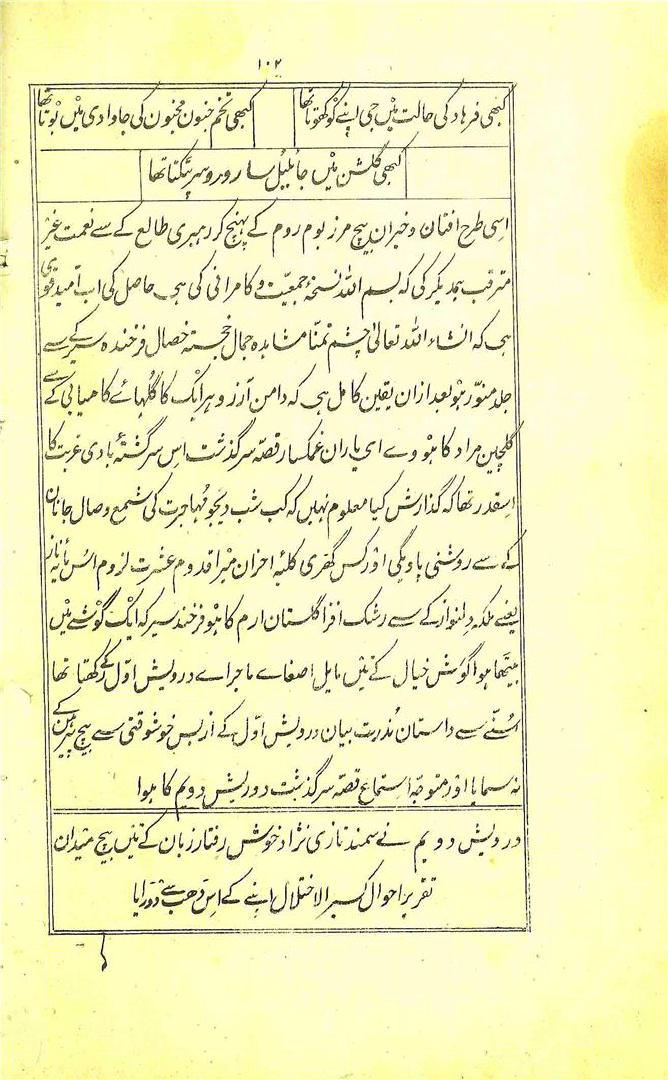 ۱۰۲
کبھی فرہاد کی حالت میں جی اپنے کو کھوتا تھا
کبھی تخم جنون مجنون کی جا وادی میں بوتا تھا
کبھی گلشن میں جا بلبل سا رو رو سر پٹکتا تھا
اسی طرح افتان و خیزان بیچ مرز بوم روم کے پہنچ کر رہبری طالع کے سے نعمت غیر
مترقب ہمدیگر کی کہ بسم اللہ نسخۂ جمعیت و کامرانی کی ہی حاصل کی اب امید قوی
ہی کہ انشاء اللہ تعالیٰ چشم تمنا مشاہدہ جمال خجستہ خصال فرخندہ سیر کے سے
جلد منوّر ہو بعد ازان یقین کامل ہی کہ دامن آرزو ہر ایک کا گلہائے کامیابی کے سے
گلچین مراد کا ہووے ای یاران غمگسار قصّہ سرگذشت اس سرگشتۂ بادی غربت کا
اسقدر تھا کہ گذارش کیا معلوم نہیں کہ کب شب دیجور مہاجرت کی شمع وصال جانان
کے سے روشنی پاویگی اور کس گھڑی کلبۂ احزان میرا قدوم عشرت لزوم اس مایۂ ناز
یعنے ملکہ دلنواز کے سے رشک افزا گلستان ارم کا ہو فرخندہ سیر کہ ایک گوشے میں
بیٹھا ہوا گوش خیال کے تیں مایل اصغاے ماجراے درویش اوّل کے رکھتا تھا
سننے سے داستان ندرت بیان درویش اوّل کے از بس خوشوقتی سے بیچ پیرہن کے
نہ سمایا اور متوجّہ استماع قصّہ سرگذشت درویش دویم کا ہوا
درویش دویم نے سمند تازی نژاد خوش رفتار زبان کے تیں بیچ میدان
تقریر احوال کسیر الاختلال اپنے کے اس ڈھب سے دوڑایا